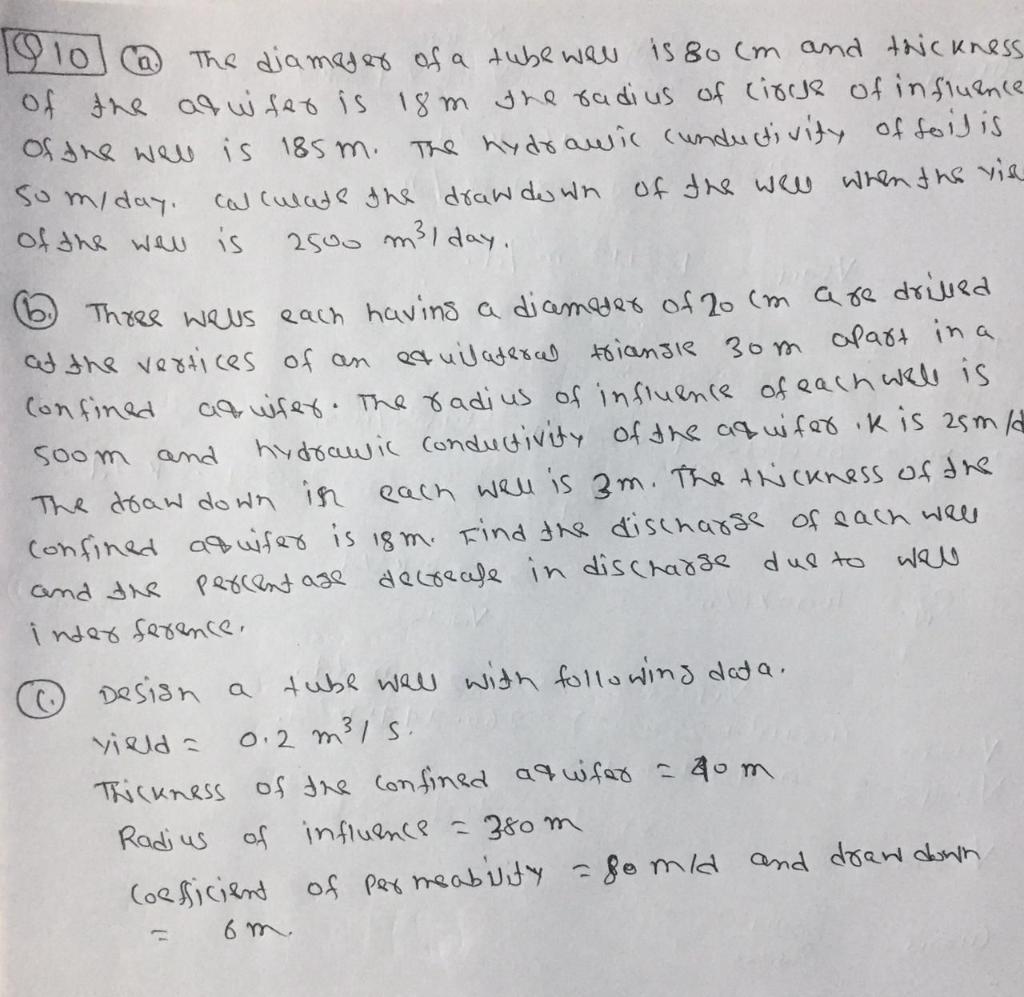 Q10 (a) The diameter of a tube well is 80 cm and thickness
of the aquifer is 18 m the radius of circle of influence
of the well is 185 m. The hydraulic cunductivity of soil is
50 m/day. calculate the drawdown of the well when the yie
of the well is 2500 m³/day.
(b.) Three wells each having a diameter of 20 cm are drilled
at the vertices of an equilateral triangle 30 m apart in a
confined aquifer. The radius of influence of each well is
500 m and hydraulic conductivity of the aquifer .K is 25 m/d
The draw down in each well is 3m. The thickness of the
confined aquifer is 18 m. Find the discharge of each well
and the percentage decrease in discharge due to well
interference.
(c.) Design a tube well with following data.
yield = 0.2 m³/s.
Thickness of the confined aquifer = 40 m
Radius of influence = 380 m
Coefficient of permeability = 80 m/d and draw down
= 6 m.